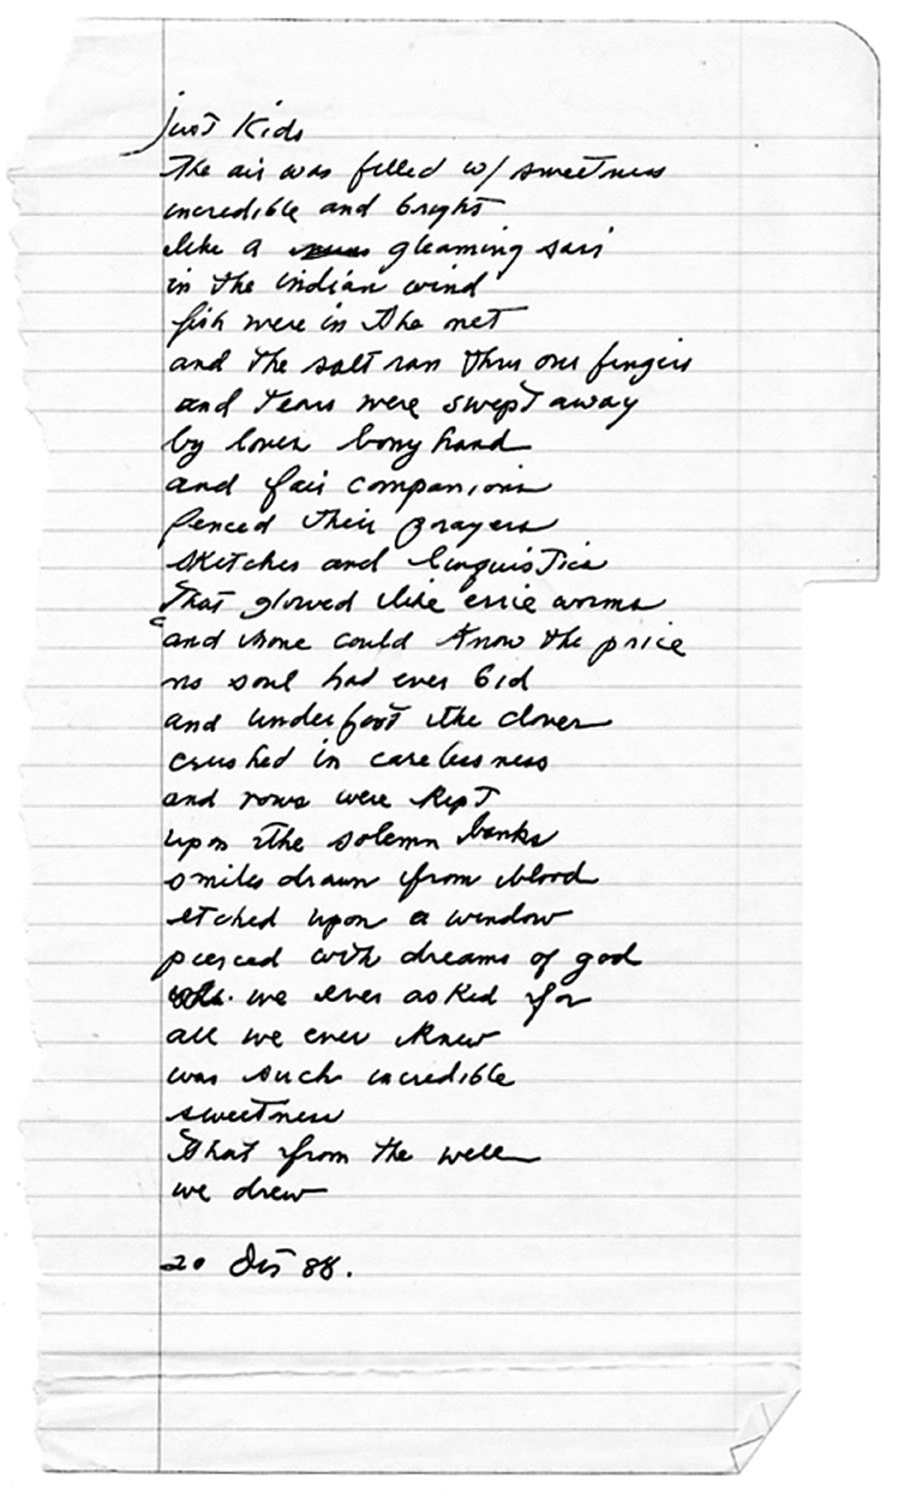 just kids
The air was filled w/ sweetness
incredible and bright
like a gleaming sari
in the indian wind
fish were in the net
and the salt ran thru our fingers
and tears were swept away
by loves bony hand
and fair companions
fenced their prayers
sketches and linguistics
that glowed like eerie worms
and none could know the price
no soul had ever bid
and underfoot the clover
crushed in carelessness
and rows were kept
upon the solemn banks
smiles drawn from blood
etched upon a window
pierced with dreams of god
we ever asked for
all we ever knew
was such incredible
sweetness
that from the well
we drew
20 88.